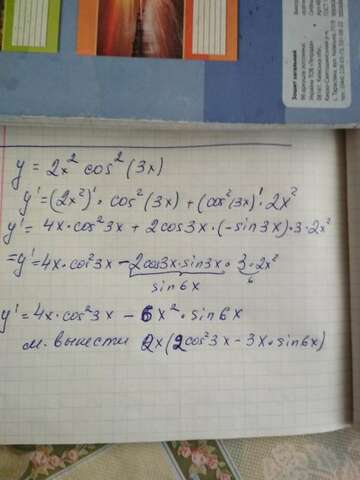 Зошит загальний
y = 2x² cos² (3x)
y' = (2x²)' · cos² (3x) + (cos² (3x))' · 2x²
y' = 4x · cos² 3x + 2 cos 3x · (-sin 3x) · 3 · 2x²
= y' = 4x · cos² 3x - 2 cos 3x · sin 3x · 3 · 2x²
sin 6x 6
y' = 4x · cos² 3x - 6x² · sin 6x
м. вынести 2x (2 cos² 3x - 3x · sin 6x)